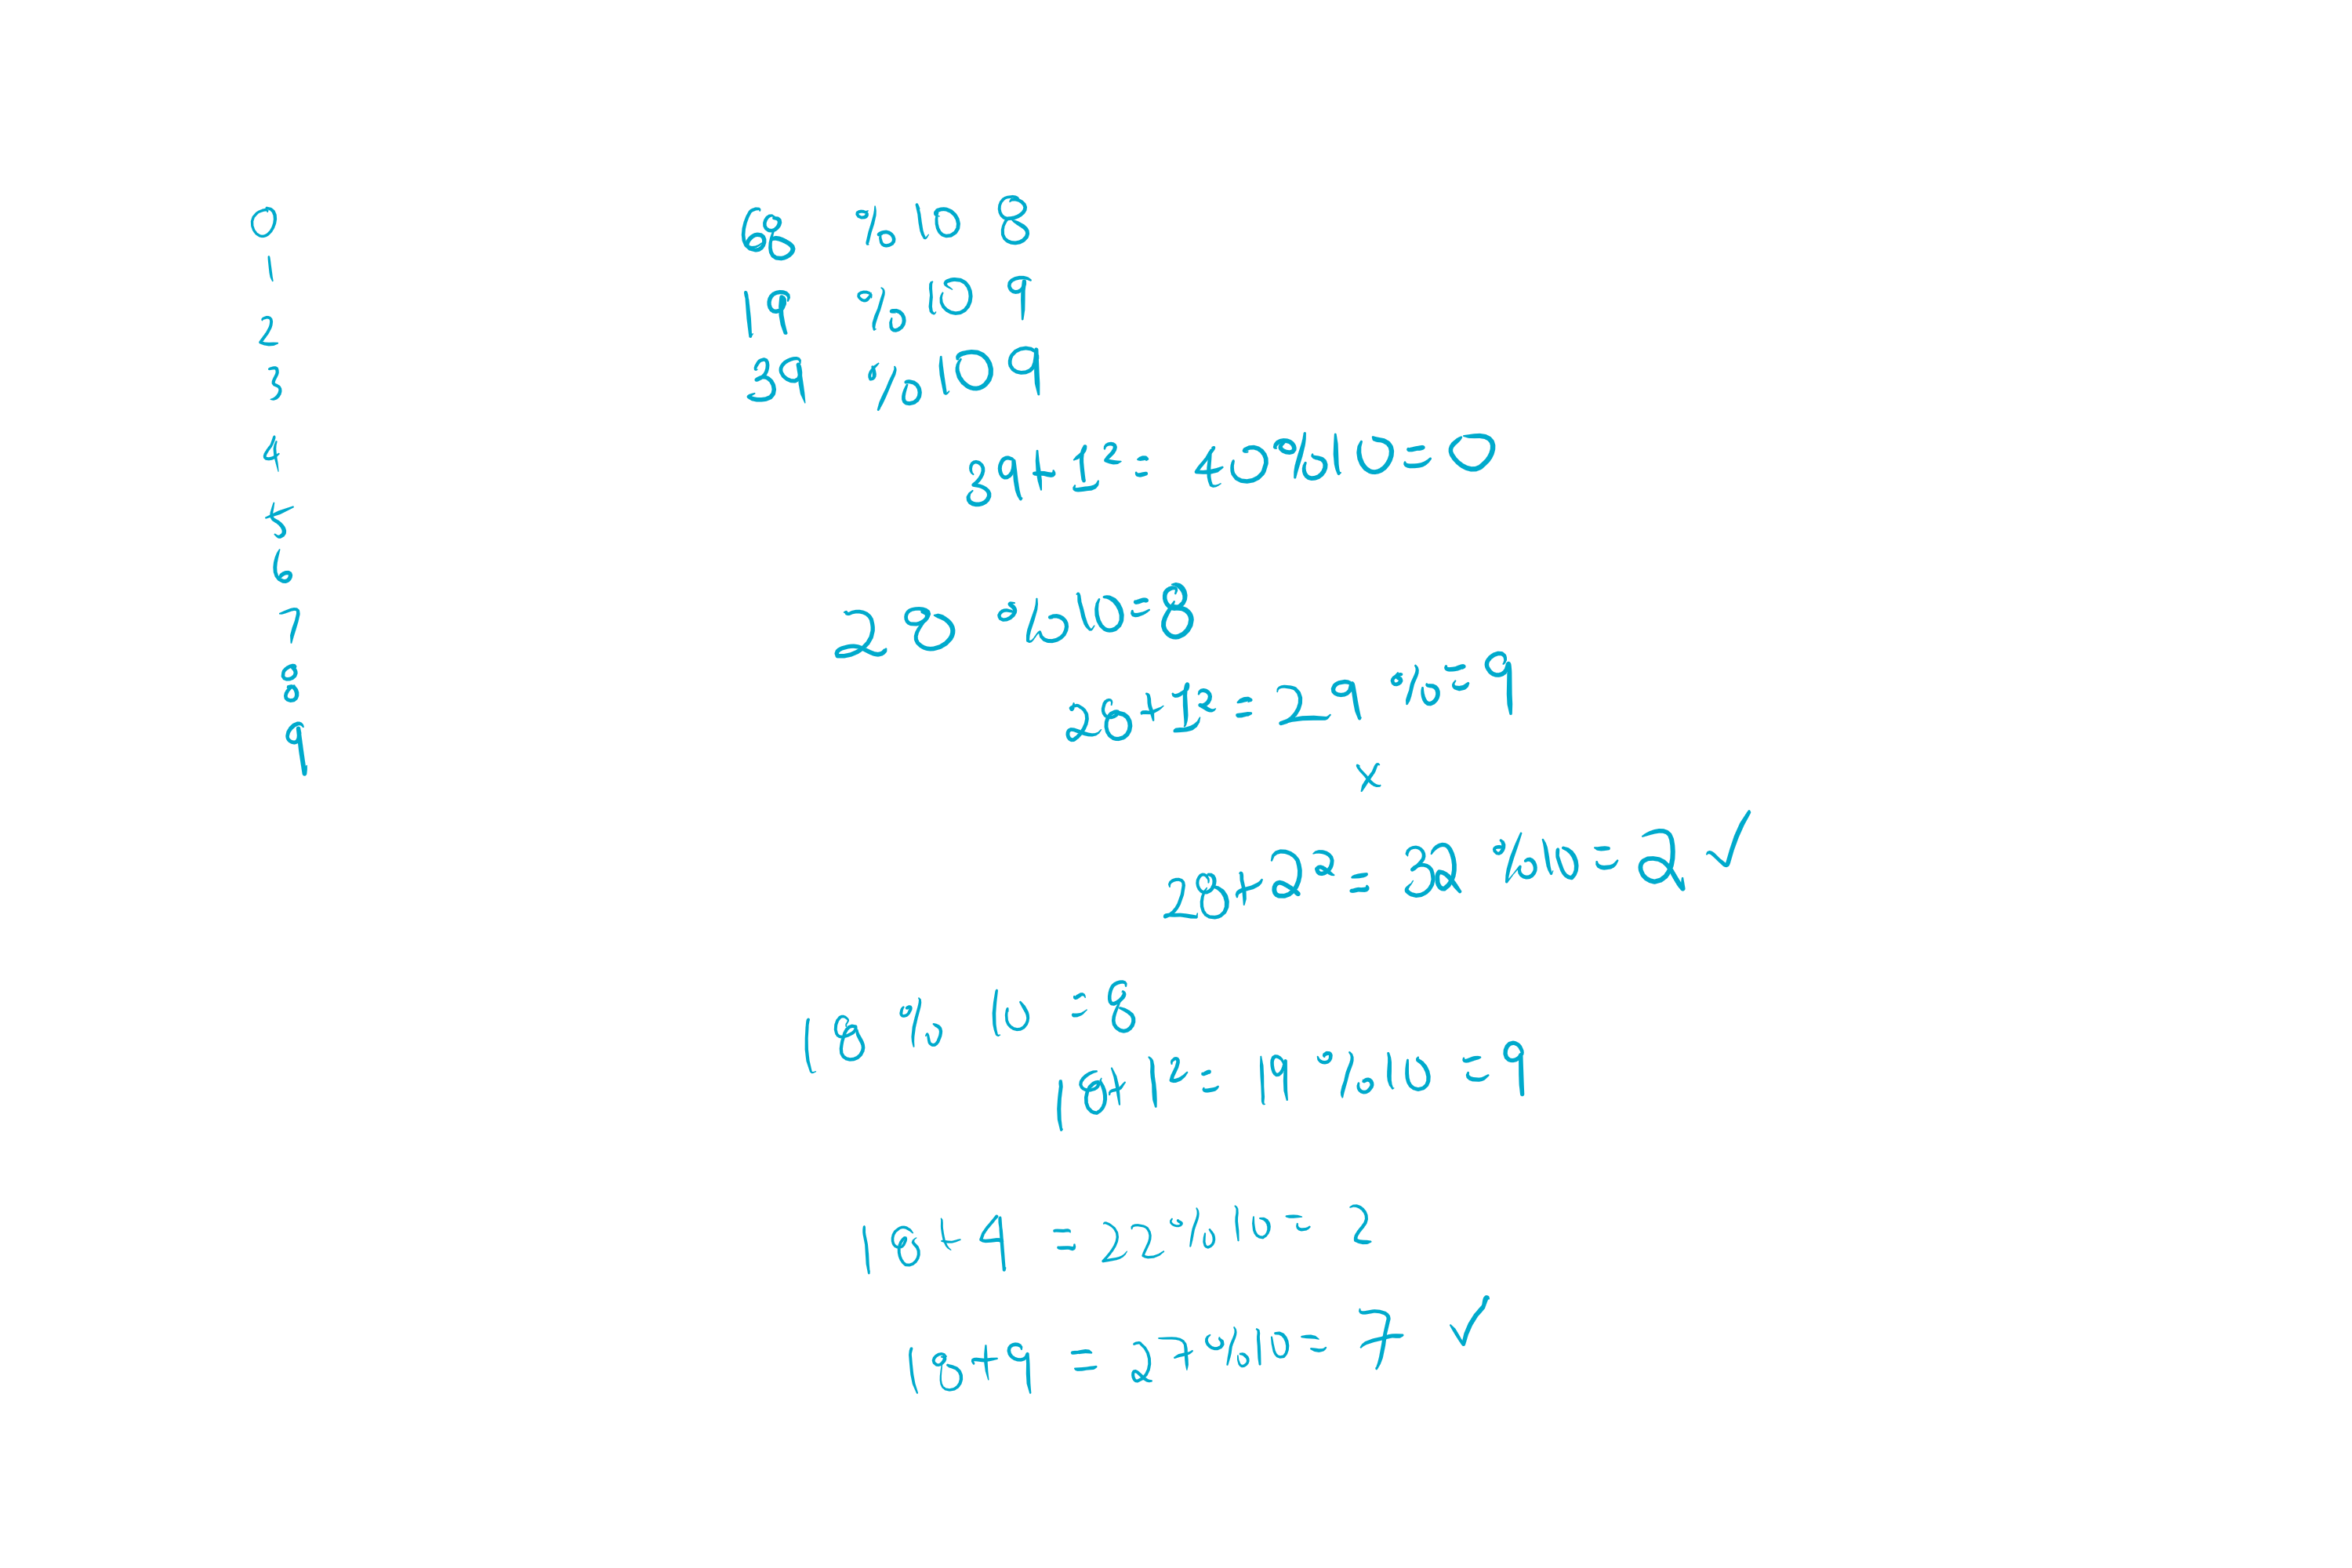 0
1
2
3
4
5
6
7
8
9
68 % 10 8
19 % 10 9
39 % 10 9
39+1²= 40%10=0
28 %10=8
28+1²=29 %=9
x
28+2²=32 %10=2 ✓
18 % 10 =8
18+1²=19 %10=9
18+4 =22%10=2
18+9 =27%10=7 ✓